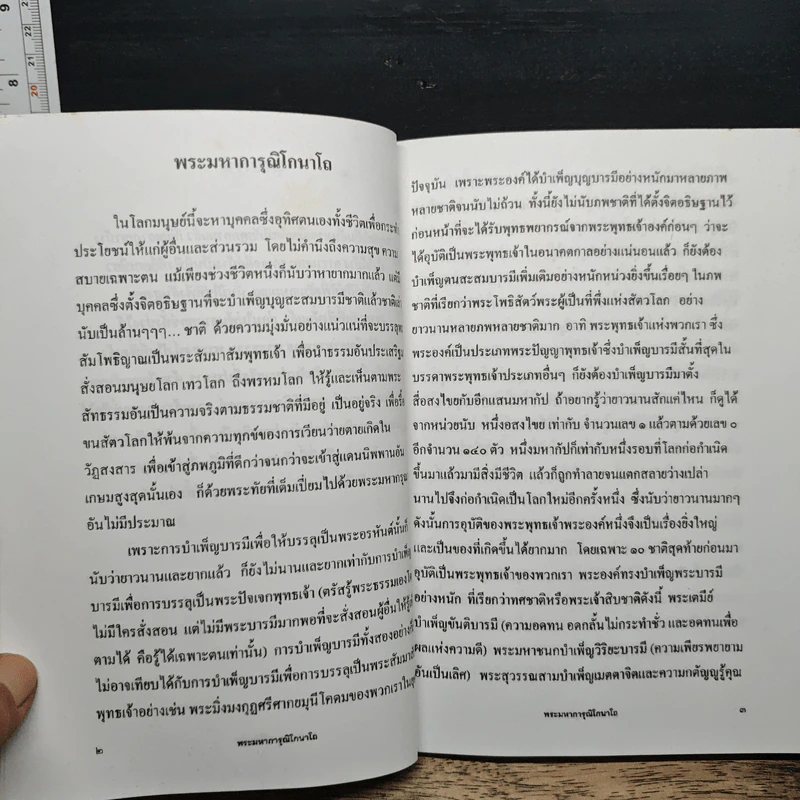 พระมหาการุณิโกนาโถ
ในโลกมนุษย์นี้จะหาบุคคลซึ่งอุทิศตนเองทั้งชีวิตเพื่อกระทำ
ประโยชน์ให้แก่ผู้อื่นและส่วนรวม โดยไม่คำนึงถึงความสุข ความ
สบายเฉพาะตน แม้เพียงช่วงชีวิตหนึ่งก็นับว่าหายากมากแล้ว แต่มี
บุคคลซึ่งตั้งจิตอธิษฐานที่จะบำเพ็ญบุญสะสมบารมีชาติแล้วชาติเล่า
นับเป็นล้านๆๆๆ... ชาติ ด้วยความมุ่งมั่นอย่างแน่วแน่ที่จะบรรลุพระ
สัมโพธิญาณเป็นพระสัมมาสัมพุทธเจ้า เพื่อนำธรรมอันประเสริฐ
สั่งสอนมนุษยโลก เทวโลก ถึงพรหมโลก ให้รู้และเห็นตามพระ
สัทธรรมอันเป็นความจริงตามธรรมชาติที่มีอยู่ เป็นอยู่จริง เพื่อรื้อ
ขนสัตว์โลกให้พ้นจากความทุกข์ของการเวียนว่ายตายเกิดใน
วัฏสงสาร เพื่อเข้าสู่ภพภูมิที่ดีกว่าจนกว่าจะเข้าสู่แดนนิพพานอัน
เกษมสูงสุดนั้นเอง ก็ด้วยพระทัยที่เต็มเปี่ยมไปด้วยพระมหากรุณา
อันไม่มีประมาณ
เพราะการบำเพ็ญบารมีเพื่อให้บรรลุเป็นพระอรหันต์นั้นก็
นับว่ายาวนานและยากแล้ว ก็ยังไม่นานและยากเท่ากับการบำเพ็ญ
บารมีเพื่อการบรรลุเป็นพระปัจเจกพุทธเจ้า (ตรัสรู้พระธรรมเองโดย
ไม่มีใครสั่งสอน แต่ไม่มีพระบารมีมากพอที่จะสั่งสอนผู้อื่นให้รู้
ตามได้ คือรู้ได้เฉพาะตนเท่านั้น) การบำเพ็ญบารมีทั้งสองอย่างนี้
ไม่อาจเทียบได้กับการบำเพ็ญบารมีเพื่อการบรรลุเป็นพระสัมมาสัม
พุทธเจ้าอย่างเช่น พระมิ่งมงกุฎศรีศากยมุนีโคดมของพวกเราใน
๒ พระมหาการุณิโกนาโถ
ปัจจุบัน เพราะพระองค์ได้บำเพ็ญบุญบารมีอย่างหนักมาหลายภพ
หลายชาติจนนับไม่ถ้วน ทั้งนี้ยังไม่นับภพชาติที่ได้ตั้งจิตอธิษฐานไว้
ก่อนหน้าที่จะได้รับพุทธพยากรณ์จากพระพุทธเจ้าองค์ก่อนๆ ว่าจะ
ได้อุบัติเป็นพระพุทธเจ้าในอนาคตกาลอย่างแน่นอนแล้ว ก็ยังต้อง
บำเพ็ญตนสะสมบารมีเพิ่มเติมอย่างหนักหน่วงยิ่งขึ้นเรื่อยๆ ในภพ
ชาติที่เรียกว่าพระโพธิสัตว์พระผู้เป็นที่พึ่งแห่งสัตว์โลก อย่าง
ยาวนานหลายภพหลายชาติมาก อาทิ พระพุทธเจ้าแห่งพวกเรา ซึ่ง
พระองค์เป็นประเภทพระปัญญาพุทธเจ้าซึ่งบำเพ็ญบารมีสั้นที่สุดใน
บรรดาพระพุทธเจ้าประเภทอื่นๆ ก็ยังต้องบำเพ็ญบารมีมาตั้ง
สี่อสงไขยกับอีกแสนมหากัป ถ้าอยากรู้ว่ายาวนานสักแค่ไหน ก็ดูได้
จากหน่วยนับ หนึ่งอสงไขย เท่ากับ จำนวนเลข ๑ แล้วตามด้วยเลข ๐
อีกจำนวน ๑๔๐ ตัว หนึ่งมหากัปก็เท่ากับหนึ่งรอบที่โลกก่อกำเนิด
ขึ้นมาแล้วมามีสิ่งมีชีวิต แล้วก็ถูกทำลายจนแตกสลายว่างเปล่า
นานไปจึงก่อกำเนิดเป็นโลกใหม่อีกครั้งหนึ่ง ซึ่งนับว่ายาวนานมากๆ
ดังนั้นการอุบัติของพระพุทธเจ้าพระองค์หนึ่งจึงเป็นเรื่องยิ่งใหญ่
และเป็นของที่เกิดขึ้นได้ยากมาก โดยเฉพาะ ๑๐ ชาติสุดท้ายก่อนมา
อุบัติเป็นพระพุทธเจ้าของพวกเรา พระองค์ทรงบำเพ็ญพระบารมี
อย่างหนัก ที่เรียกว่าทศชาติหรือพระเจ้าสิบชาติดังนี้ พระเตมีย์
บำเพ็ญขันติบารมี (ความอดทน อดกลั้น ไม่กระทำชั่ว และอดทนเพื่อ
ผลแห่งความดี) พระมหาชนกบำเพ็ญวิริยะบารมี (ความเพียรพยายาม
อันเป็นเลิศ) พระสุวรรณสามบำเพ็ญเมตตาจิตและความกตัญญูรู้คุณ
พระมหาการุณิโกนาโถ ๓